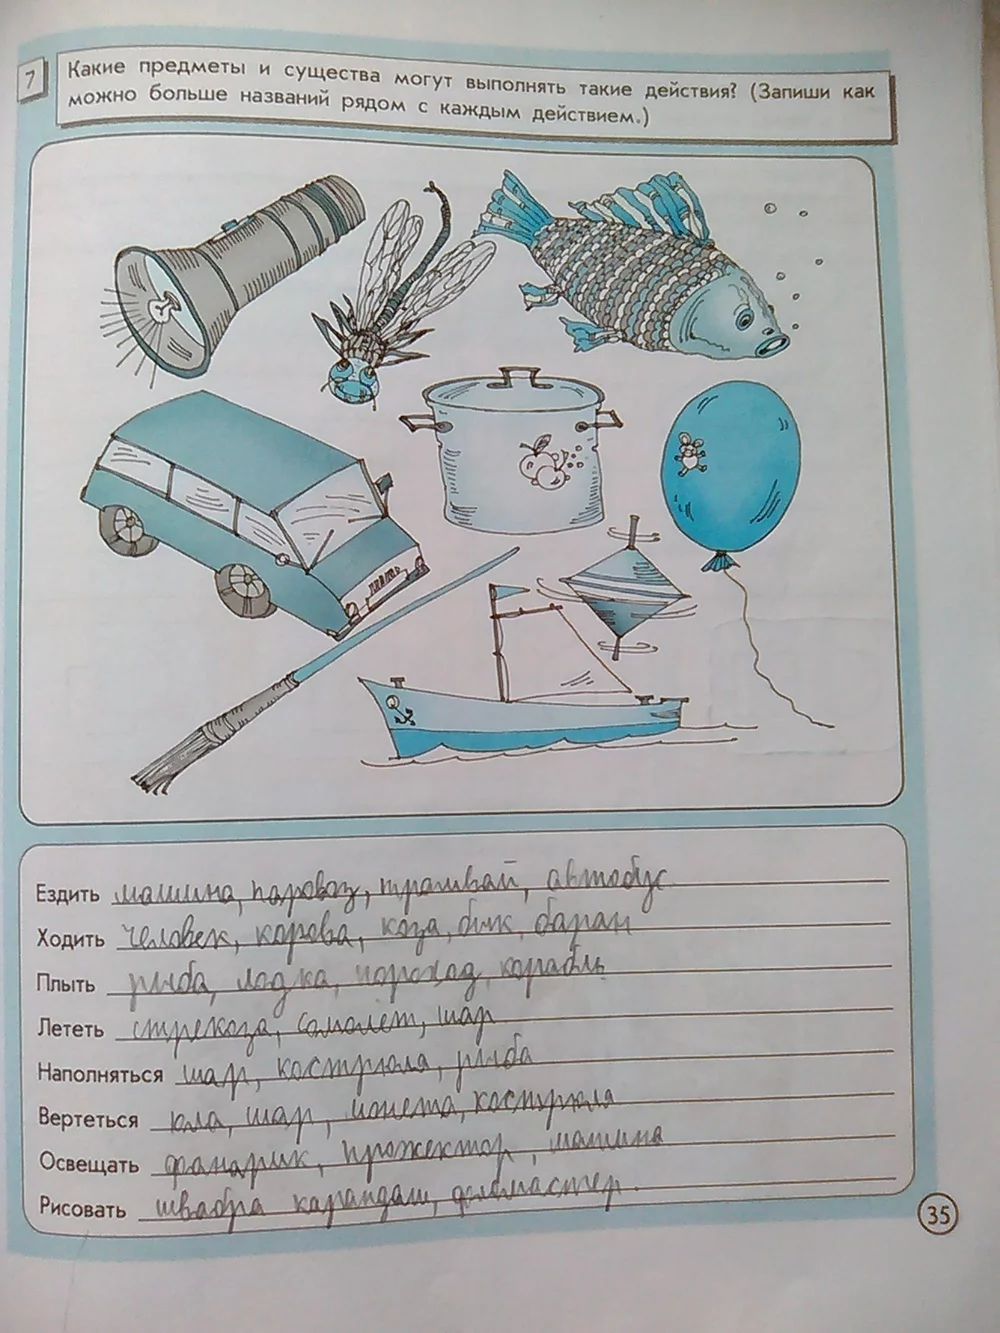 7
Какие предметы и существа могут выполнять такие действия? (Запиши как
можно больше названий рядом с каждым действием.)
Ездить машина, паровоз, трамвай, автобус
Ходить человек, корова, коза, бык, баран
Плыть рыба, лодка, пороход, корабль
Лететь стрекоза, самолёт, шар
Наполняться шар, кострюля, рыба
Вертеться юла, шар, монета, кострюля
Освещать фанарик, прожектор, машина
Рисовать швабра карандаш,
35